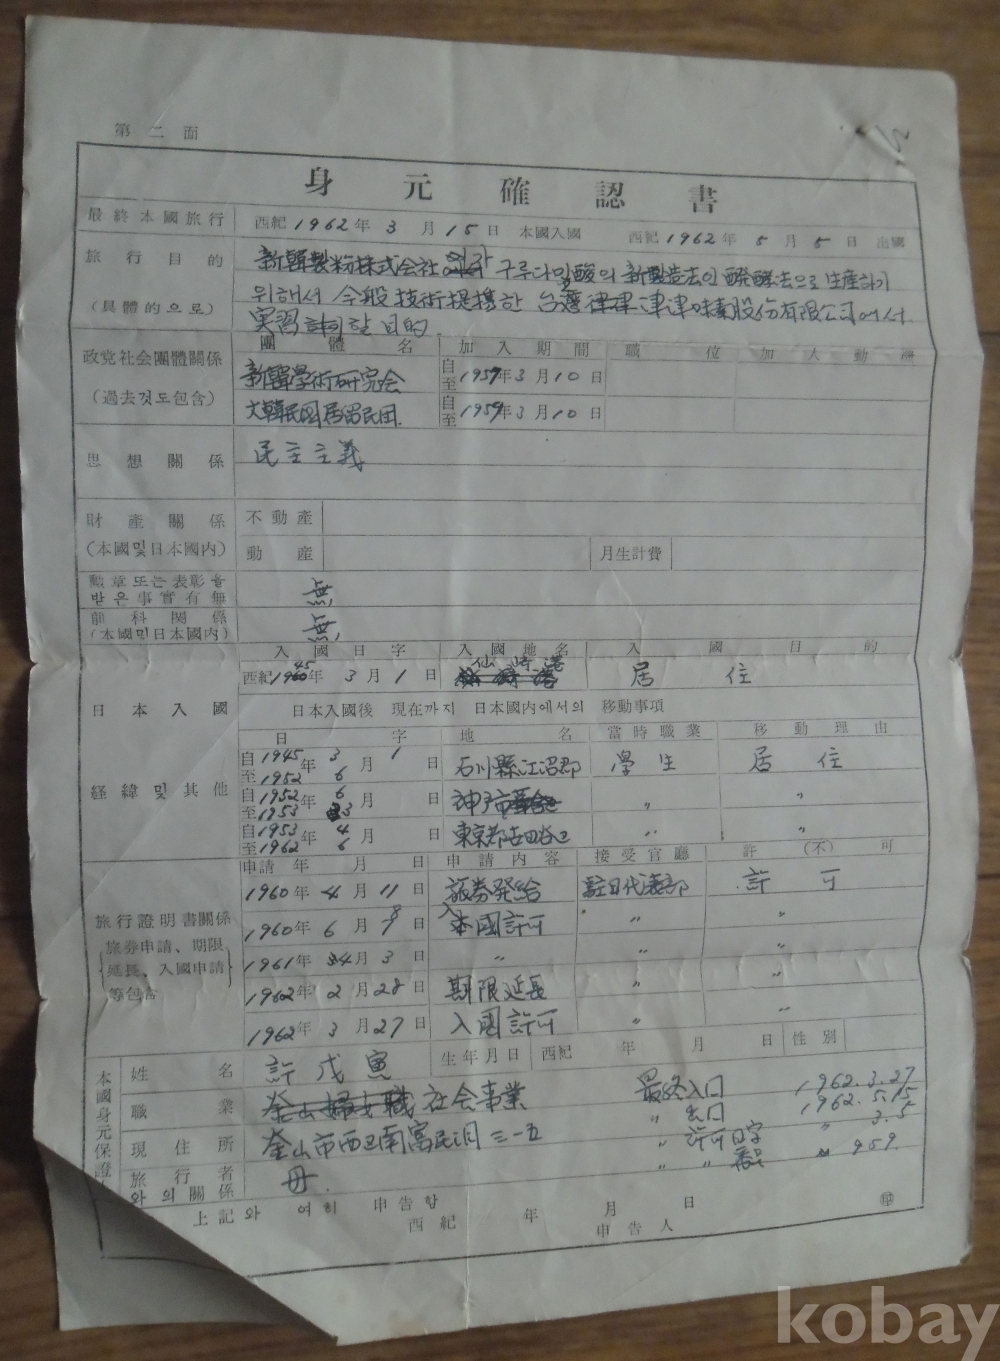 第二面
身元確認書
最終本國旅行 西紀1962年3月15日 本國入國 西紀1962年5月5日 出國
旅行目的 新韓製粉株式会社 구루다밍酸의 新製造法인 醱酵法으로 生産하기
(具體的으로) 위해서 今般 技術提携한 台灣 津津味素股份有限公司에서
実習 할 目的.
團體名 加入期間 職位 加入動機
政党社会團體關係 新韓學術研究会 自至1959年3月10日
(過去것도包含) 大韓民国居留民団. 自至1959年3月10日
思想關係 民主主義
財産關係 不動産
(本國및日本國内) 動産 月生計費
勲章또는表彰을
받은事實有無 無,
前科関係
(本國및日本國内) 無,
入國日字 入國地名 入國目的
仙崎港
西紀1945年3月1日 居住
日本入國 日本入國後 現在까지 日本國内에서의 移動事項
日字 地名 當時職業 移動理由
自1945年3月1日 石川縣江沼郡 學生 居住
至1952 6
経緯및其他 自1952年6月日 神戸市 〃 〃
至1953 3
自1953年4月日 東京都 〃 〃
至1962 6
申請年月日 申請内容 接受官廳 許(不)可
1960年4月11日 旅券発給 駐日代表部 許可
旅行證明書關係 1960年6月8日 入國許可 〃 〃
旅券申請、期限
延長、入國申請 1961年4月3日 〃 〃 〃
等包含 1962年2月28日 期限延長 〃 〃
1962年3月27日 入國許可 〃 〃
本國身元保證 姓名 許戊寅 生年月日 西紀 年 月 日 性別
職業 社会事業 最終入口 1962.3.27
〃 出口 1962.5.15
現住所 釜山市西区南富民洞三一五 〃 許可日字 〃 3.5
旅行者 〃 〃 番号 〃 959
와의關係 母.
上記와 여히 申告함
西紀 年 月 日
申告人 ㊞
kobay